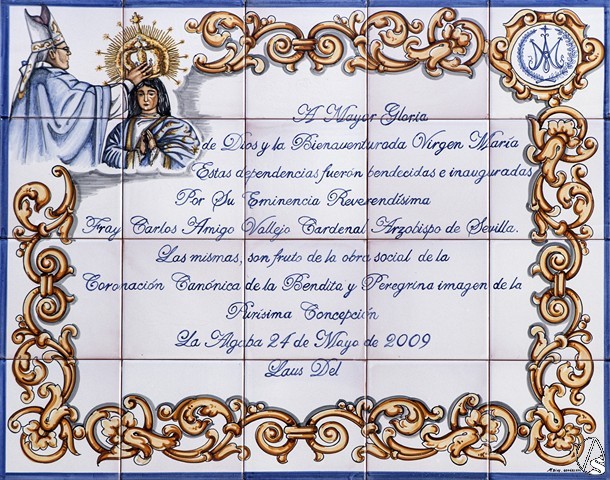 A Mayor Gloria
de Dios y la Bienaventurada Virgen María
Estas dependencias fuerón bendecidas e inauguradas
Por Su Eminencia Reverendísima
Fray Carlos Amigo Vallejo Cardenal Arzobispo de Sevilla.
Las mismas, son fruto de la obra social de la
Coronación Canónica de la Bendita y Peregrina imagen de la
Purisima Concepción
La Algaba 24 de Mayo de 2009
Laus Deï